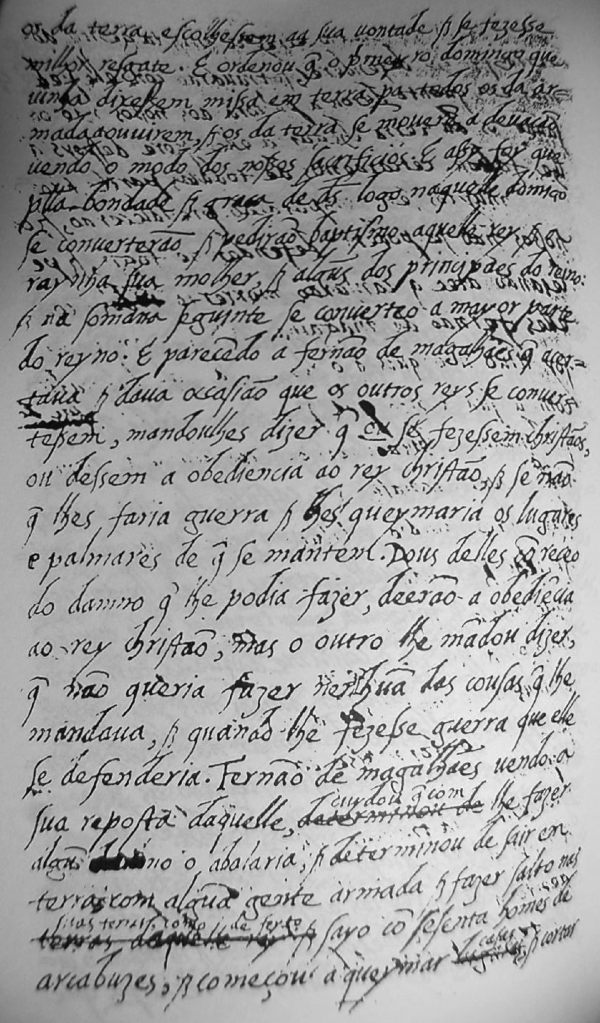 or da terra, escolhessem aa sua vontade, & se fezesse
milhor resgate. E ordenou q̃ o primeiro domingo que
vinha dixessem missa em terra pa todos os da ar=
mada a ouvirem, & os da terra se moverẽ a devaçaõ
vendo o modo dos nossos sacrificios. E assy foy que
polla bondade & graça de ds̃ logo naquelle domĩgo
se converteraõ & pediraõ baptismo aquelle rey & a
raynha sua molher, & algũs dos principaes do reino:
& na somana seguinte se converteo a mayor parte
do reyno. E parecẽdo a fernaõ de magalhaẽs q̃ acer=
tava & dava occasiaõ que os outros reys se convers
tessem, mandoulhes dizer q̃ se fezessem christaõs,
ou dessem a obediencia ao rey christaõ, & se naõ
q̃ lhes faria guerra & lhes queymaria os lugares
e palmares de q̃ se mantem. Dous delles cõ receo
do damno q̃ lhe podia fazer, deeraõ a obediẽcia
ao rey christaõ, mas o outro lhe mãdou dizer,
q̃ naõ queria fazer nenhuã das cousas q̃ lhe
mandava, & quando lhe fezesse guerra que elle
se defenderia. Fernaõ de magalhaẽs vendo a
sua reposta daquelle, determinou de cuidou q̃ com lhe fazer
algũ no o abalaria, & determinou de sair em
terra com alguã gente armada & fazer salto nas
terras daquelle rey suas terras como de feito & sayo cõ sesenta homẽs de
arcabuzes, & começou a queymar lugares casas, & cortar